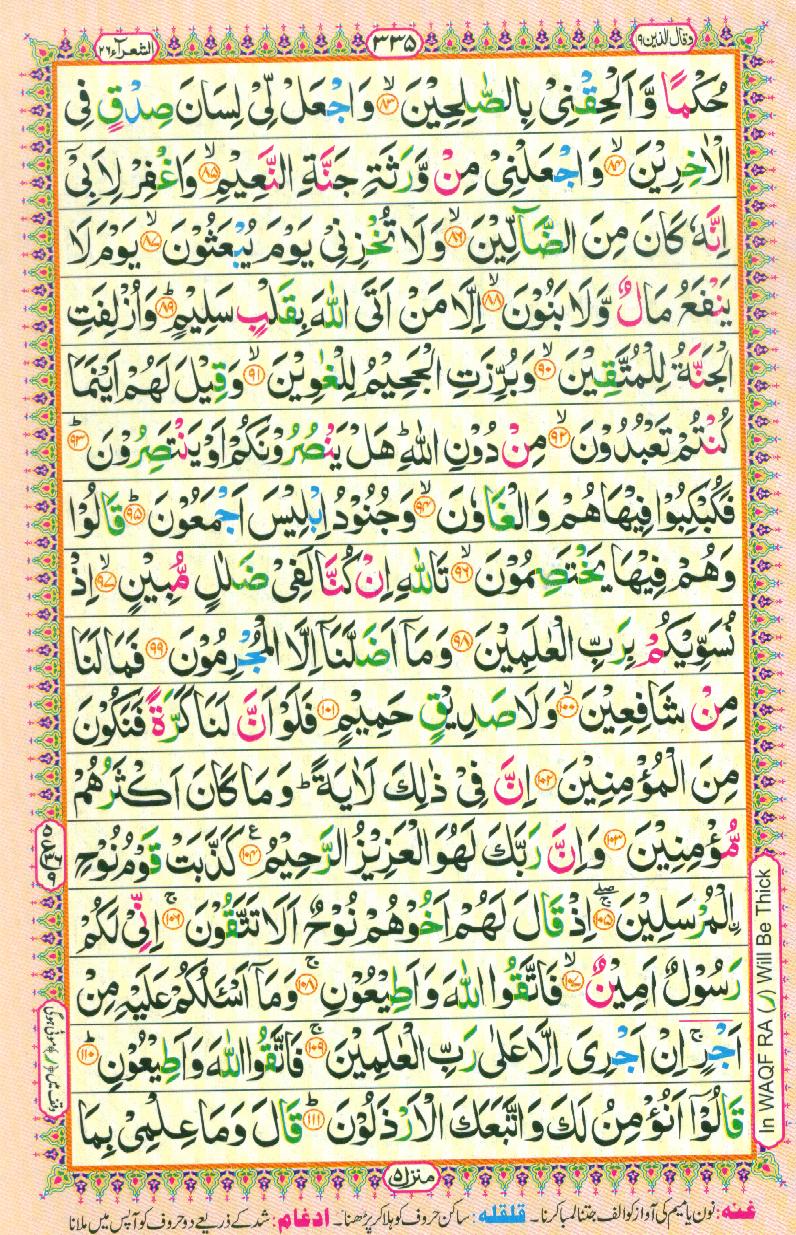 وقال الذین ۱۹
۳۳۵
الشعرآء ۲۶
حُكْمًا وَّ اَلْحِقْنِیْ بِالصّٰلِحِیْنَ ﴿۸۳﴾ وَ اجْعَلْ لِّیْ لِسَانَ صِدْقٍ فِی
الْاٰخِرِیْنَ ﴿۸۴﴾ وَ اجْعَلْنِیْ مِنْ وَّرَثَةِ جَنَّةِ النَّعِیْمِ ﴿۸۵﴾ وَ اغْفِرْ لِاَبِیْۤ
اِنَّهٗ كَانَ مِنَ الضَّآلِّیْنَ ﴿۸۶﴾ وَ لَا تُخْزِنِیْ یَوْمَ یُبْعَثُوْنَ ﴿۸۷﴾ یَوْمَ لَا
یَنْفَعُ مَالٌ وَّ لَا بَنُوْنَ ﴿۸۸﴾ اِلَّا مَنْ اَتَی اللّٰهَ بِقَلْبٍ سَلِیْمٍ ﴿۸۹﴾ وَ اُزْلِفَتِ
الْجَنَّةُ لِلْمُتَّقِیْنَ ﴿۹۰﴾ وَ بُرِّزَتِ الْجَحِیْمُ لِلْغٰوِیْنَ ﴿۹۱﴾ وَ قِیْلَ لَهُمْ اَیْنَمَا
كُنْتُمْ تَعْبُدُوْنَ ﴿۹۲﴾ مِنْ دُوْنِ اللّٰهِ ؕ هَلْ یَنْصُرُوْنَكُمْ اَوْ یَنْتَصِرُوْنَ ﴿۹۳﴾
فَكُبْكِبُوْا فِیْهَا هُمْ وَ الْغَاوٗنَ ﴿۹۴﴾ وَ جُنُوْدُ اِبْلِیْسَ اَجْمَعُوْنَ ﴿۹۵﴾ قَالُوْا
وَ هُمْ فِیْهَا یَخْتَصِمُوْنَ ﴿۹۶﴾ تَاللّٰهِ اِنْ كُنَّا لَفِیْ ضَلٰلٍ مُّبِیْنٍ ﴿۹۷﴾ اِذْ
نُسَوِّیْكُمْ بِرَبِّ الْعٰلَمِیْنَ ﴿۹۸﴾ وَ مَاۤ اَضَلَّنَاۤ اِلَّا الْمُجْرِمُوْنَ ﴿۹۹﴾ فَمَا لَنَا
مِنْ شَافِعِیْنَ ﴿۱۰۰﴾ وَ لَا صَدِیْقٍ حَمِیْمٍ ﴿۱۰۱﴾ فَلَوْ اَنَّ لَنَا كَرَّةً فَنَكُوْنَ
مِنَ الْمُؤْمِنِیْنَ ﴿۱۰۲﴾ اِنَّ فِیْ ذٰلِكَ لَاٰیَةً ؕ وَ مَا كَانَ اَكْثَرُهُمْ
مُّؤْمِنِیْنَ ﴿۱۰۳﴾ وَ اِنَّ رَبَّكَ لَهُوَ الْعَزِیْزُ الرَّحِیْمُ ﴿۱۰۴﴾ كَذَّبَتْ قَوْمُ نُوْحِ
ِ۟الْمُرْسَلِیْنَ ﴿۱۰۵﴾ اِذْ قَالَ لَهُمْ اَخُوْهُمْ نُوْحٌ اَلَا تَتَّقُوْنَ ﴿۱۰۶﴾ اِنِّیْ لَكُمْ
رَسُوْلٌ اَمِیْنٌ ﴿۱۰۷﴾ فَاتَّقُوا اللّٰهَ وَ اَطِیْعُوْنِ ﴿۱۰۸﴾ وَ مَاۤ اَسْـَٔلُكُمْ عَلَیْهِ مِنْ
اَجْرٍ ۚ اِنْ اَجْرِیَ اِلَّا عَلٰی رَبِّ الْعٰلَمِیْنَ ﴿۱۰۹﴾ فَاتَّقُوا اللّٰهَ وَ اَطِیْعُوْنِ ﴿۱۱۰﴾
قَالُوْۤا اَنُؤْمِنُ لَكَ وَ اتَّبَعَكَ الْاَرْذَلُوْنَ ﴿۱۱۱﴾ قَالَ وَ مَا عِلْمِیْ بِمَا
In WAQF RA (ر) Will Be Thick
منزل ۵
غنہ: نون یا میم کی آواز کو الف جتنا لمبا کرنا۔ قلقلہ: ساکن حروف کو ہلا کر پڑھنا۔ ادغام: شد کے ذریعے دو حروف کو آپس میں ملانا